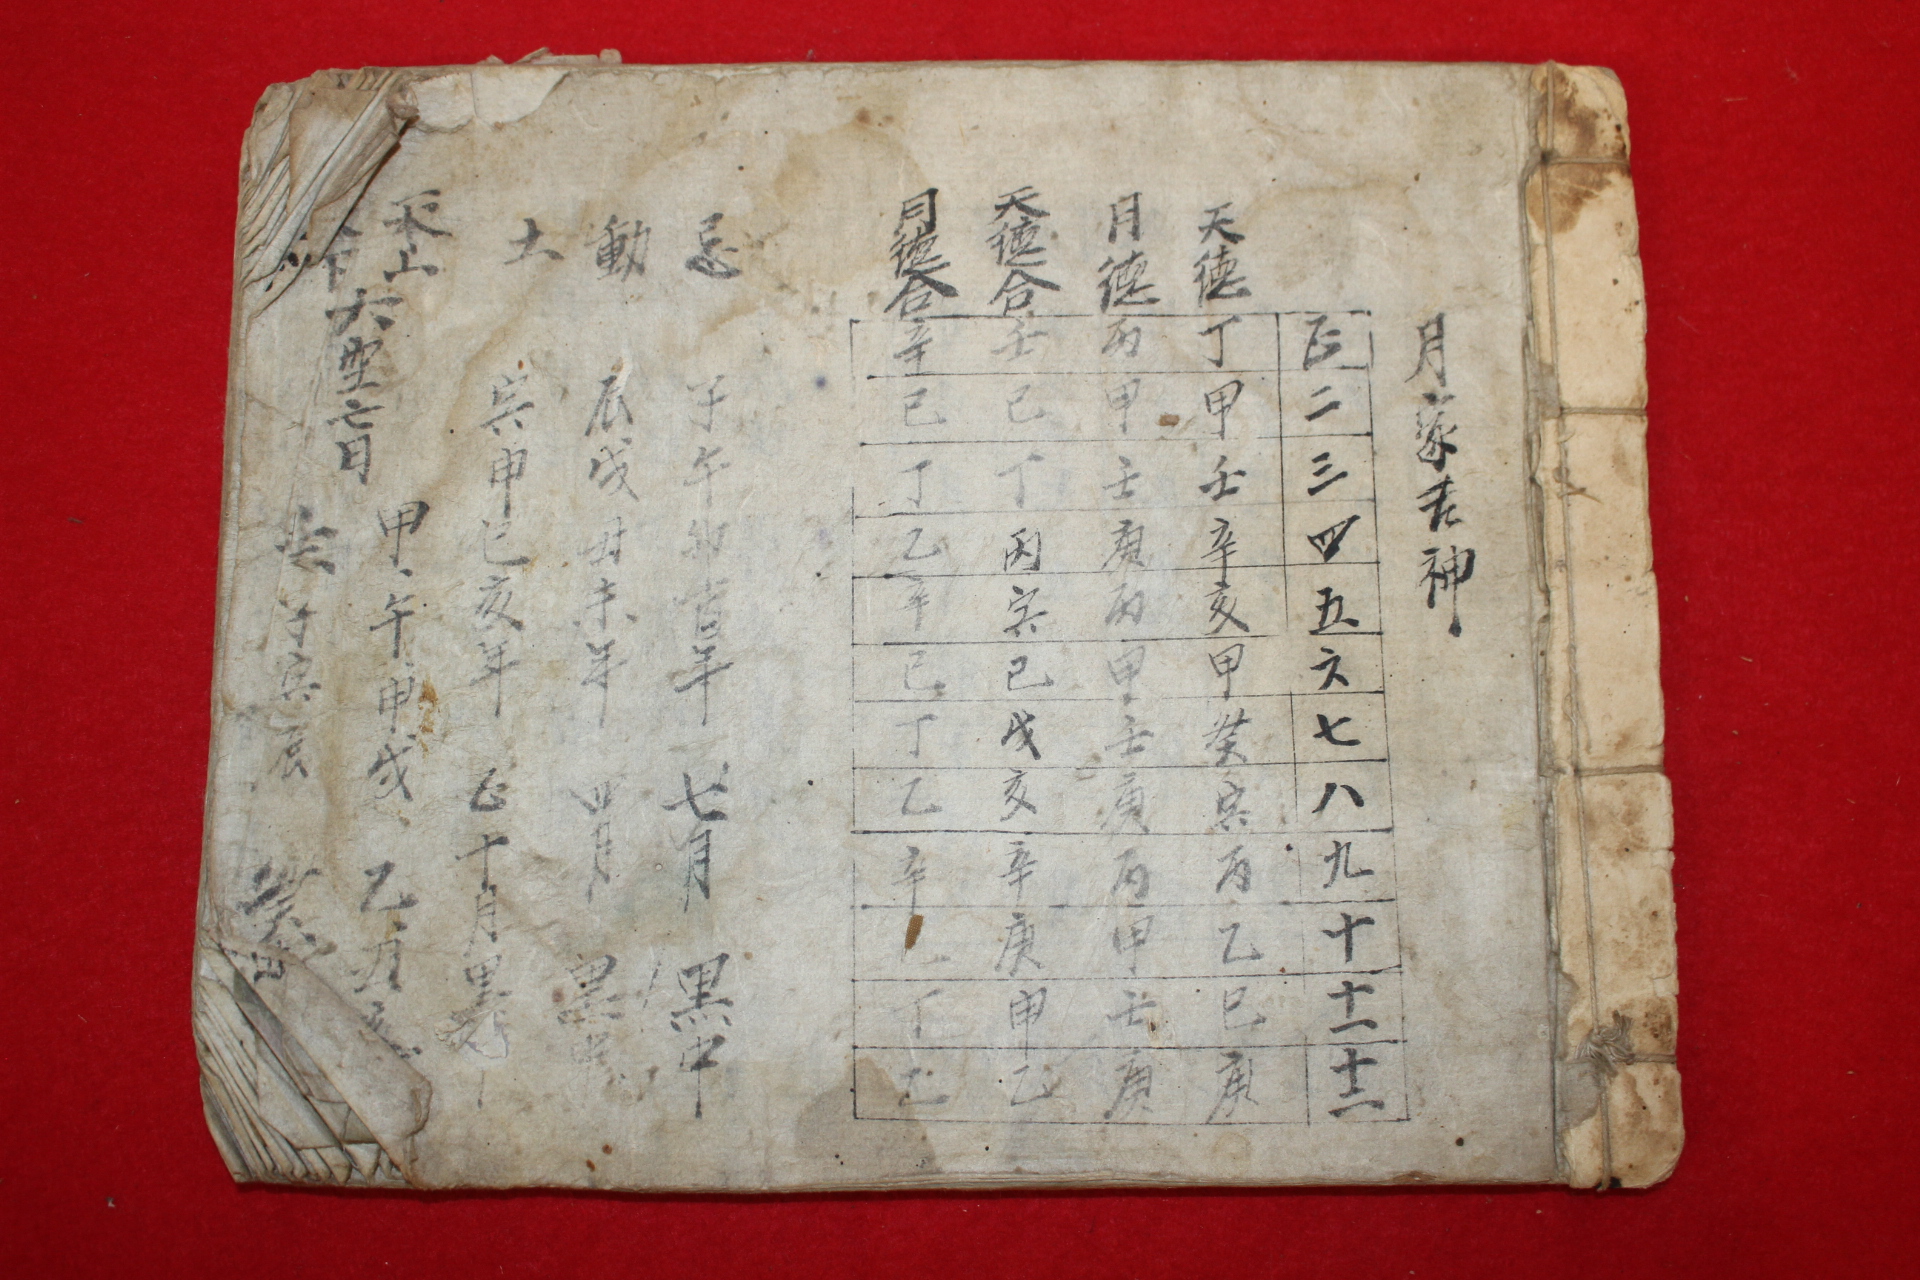 月家吉神
正二三四五六七八九十十一十二
天德丁甲壬辛亥甲癸寅丙乙巳庚
月德丙甲壬庚丙甲壬庚丙甲壬庚
天德合壬巳丁丙寅己戊亥辛庚申乙
月德合辛己丁乙辛己丁乙辛丁乙
忌子午卯酉年七月黑中
動辰戌丑未年四月黑中
土寅申巳亥年正十月黑
天山六空亡日甲午申戌乙丑亥
下子寅辰癸日